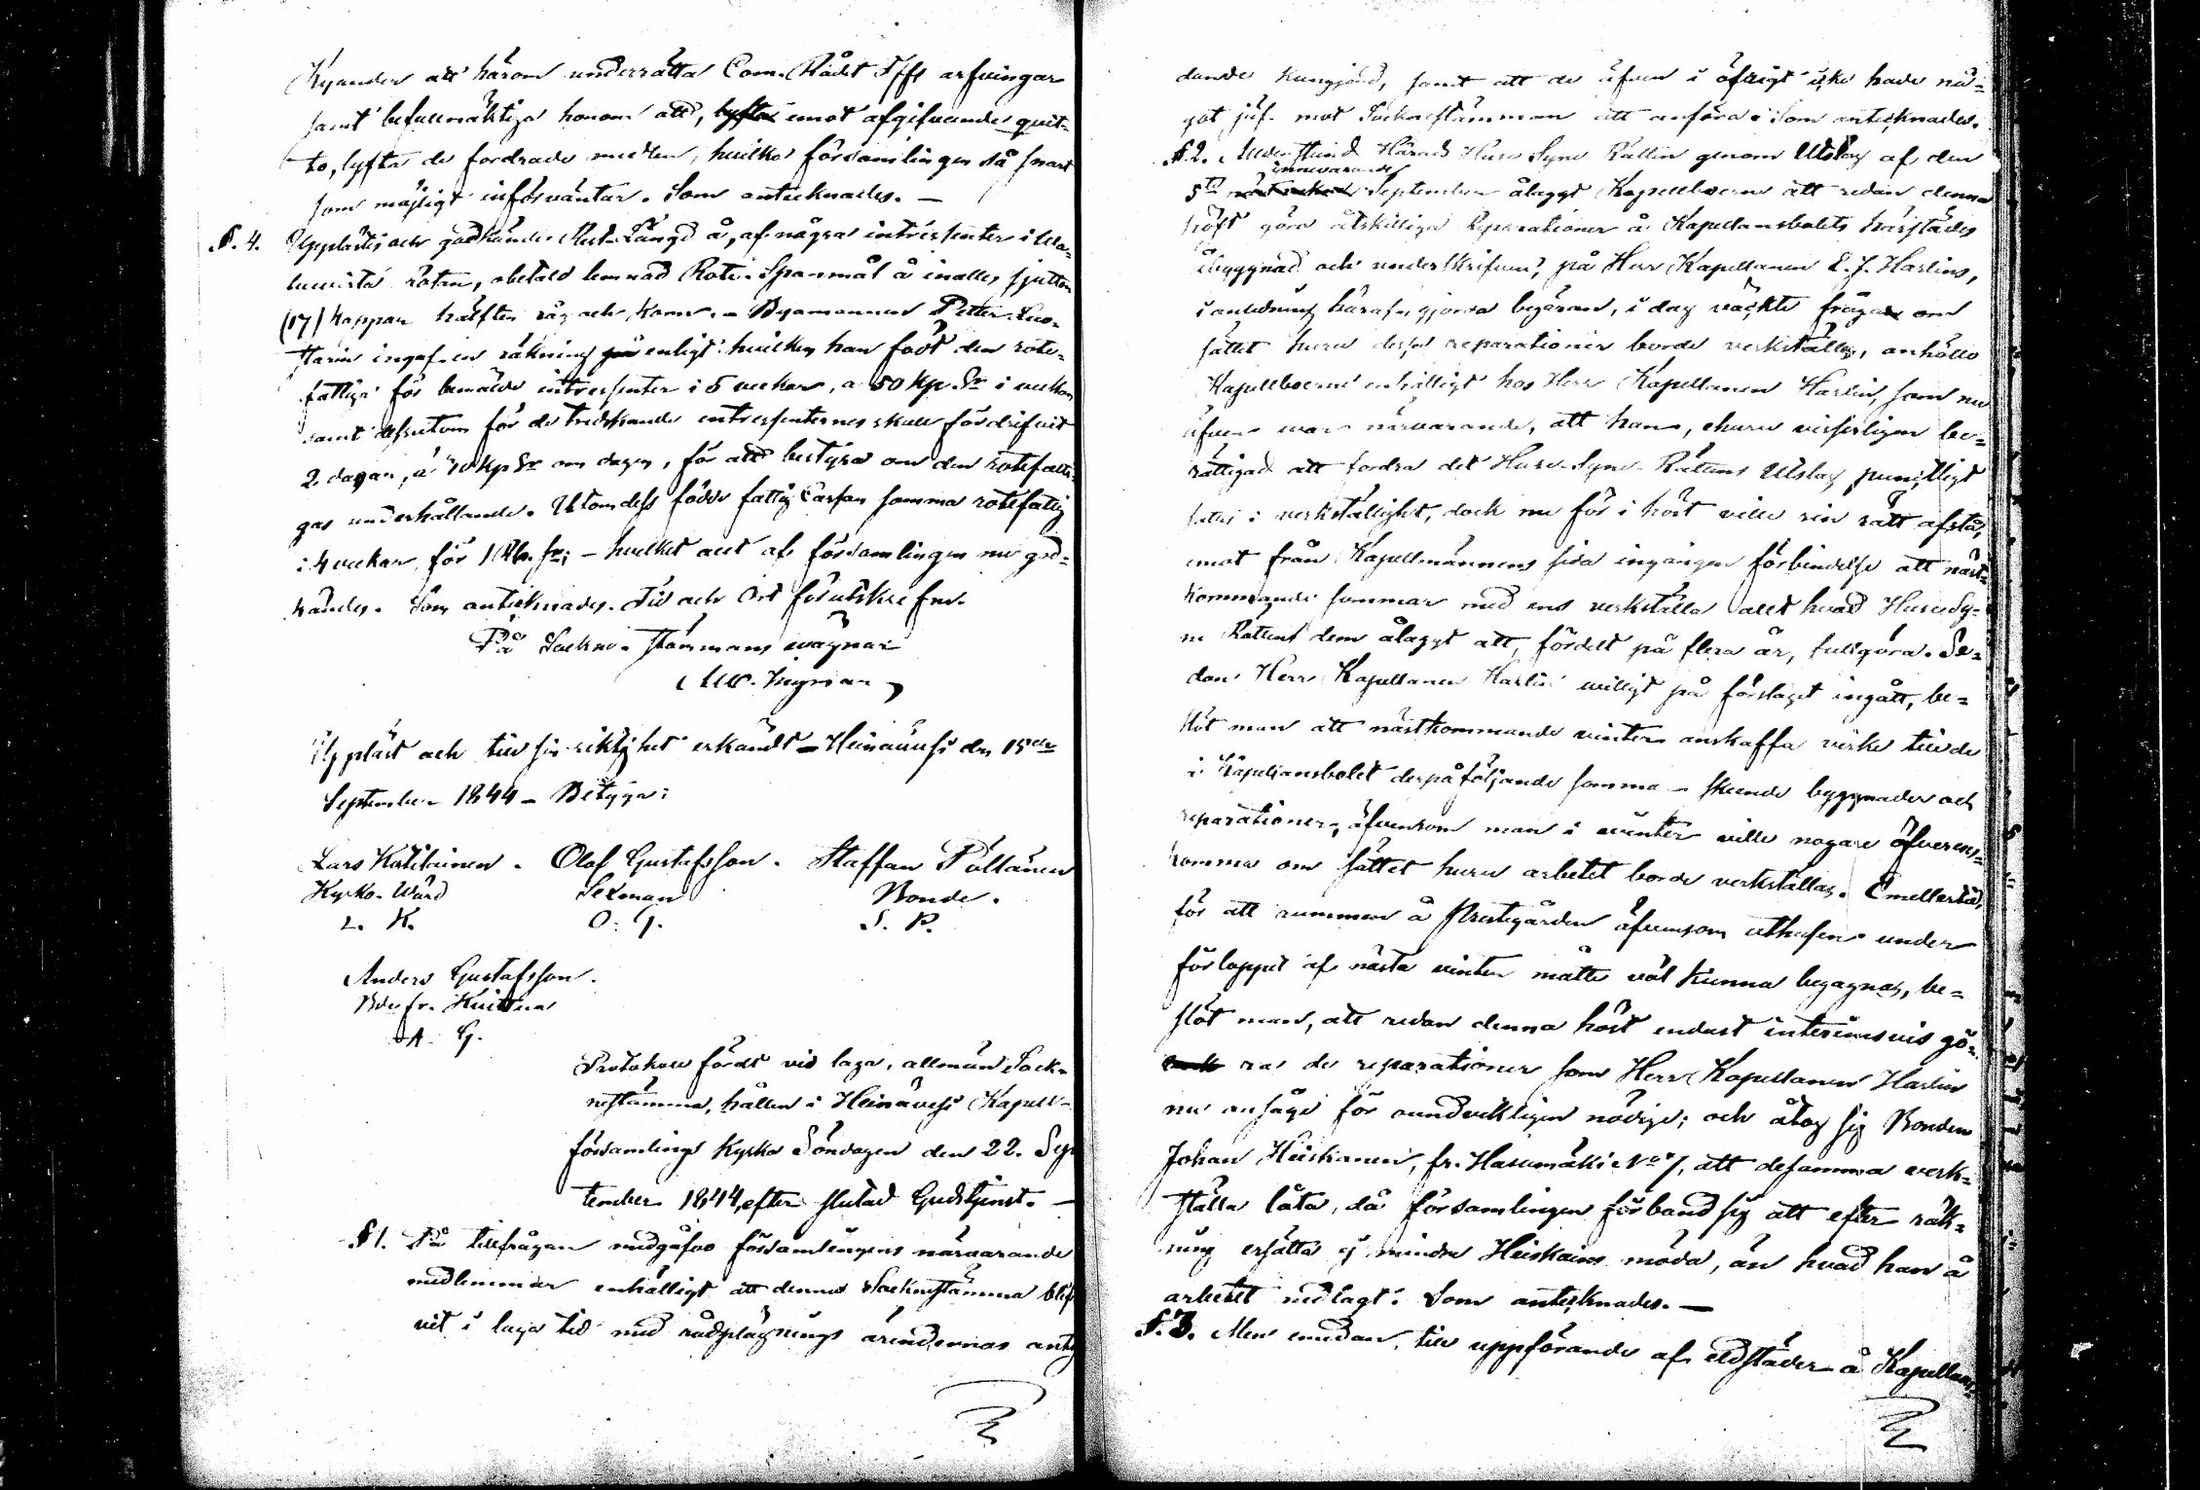 Kyander att härom underrätta Com. Rådet Iffs arfvingar
samt befullmäktiga honom att, lyfta emot afgifvande qvit-
to, lyfta de fordrade medlen, hvilka församlingen så snart
som möjligt införväntar. Som antecknades. —
§. 4. Upplästes och godkändes Rest-Längd å, af några intressenter i
rotan, obetald lemnad Rote-Spanmål å inalles sjutton
(17) kappar hälften råg och korn. - Byamannen Petter
ingaf en räkning enligt hvilken han födt den rote-
fattiga för bemälde intressenter i 5 veckor, a 50 Kp. Sr i veckan
samt dessutom för de tredskande intressenternes skull fördrifvit
2 dagar, á 70 Kp Sr om dagen, för att bestyra om den rotefatti-
gas underhållande. Utomdess födde fattig Cassan samma rotefattig
i 4 veckar för 1 Rb. Sr; - hvilket allt af församlingen nu god-
kändes. Som antecknades. Tid och Ort förutskrefne.
På Sockne-Stämmans vägnar
Ingman
Uppläst och till sin riktighet erkändt - Heinävesi den 15de
September 1844 - Betyga:
Lars Kotilainen. Olof Gustafsson. Staffan Pöllänen
Kyrko-Wärd Sexman Bonde.
L. K. O. G. S. P.
Anders Gustafsson.
Bde fr.
A. G.
Protokoll fördt vid laga, allmän Sock-
nestämma, hållen i Heinävesi Kapell-
församlings Kyrka Söndagen den 22. Sep
tember 1844, efter slutad Gudstjenst. —
§ 1. På tillfrågan medgåfvo församlingens närvarande
medlemmar enhälligt att denna Sockenstämma blif
vit i laga tid med rådplägnings ärendernas anty
dande kungjord, samt att de äfven i öfrigt icke hade nå-
got jäf mot Sockenstämman att anföra. Som antecknades.
§. 2. Medelst Härads Huse Syne Rätten genom Utslag af den
innevarande
5te September ålaggt Kapellboerne att redan denna
höst göra åtskilliga Reparationer å Kapellansbolets härstädes
åbyggnad och underskrifven, på Herr Kapellanen E. J. Harlins,
i anledning häraf, gjorda begäran, i dag väckte fråga om
sättet huru dessa reparationer borde verkställas, anhöllo
Kapellboerne enhälligt hos Herr Kapellanen Harlin, som nu
äfven war närvarande, att han, ehuru visserligen be-
rättigad att fordra det Huse-Syne-Rättens Utslag punctligt
sattes i verkställighet, dock nu för i höst ville sin rätt afstå,
emot från Kapellmännens sida ingången förbindelse att näst-
kommande sommar med ens verkställa allt hvad Huse Sy-
ne Rätten dem ålaggt att, fördelt på flera år, fullgöra. Se-
dan Herr Kapellanen Harlin villigt på förslaget ingått, be-
slöt man att nästkommande vinter anskaffa virke till de
i Kapellansbolet derpåföljande somma- skeende byggnader och
reparationer, äfvensom man i vinter ville nogare öfverens-
komma om sättet huru arbetet borde verkställas. Emellertid,
för att rummen å Prestgården äfvensom uthusen under
förloppet af nästa vinter måtte väl kunna begagnas, be-
slöt man, att redan denna höst endast interimsvis gö-
ras de reparationer som Herr Kapellanen Harlin
nu ansåge för oundvikligen nödige; och åtog sig Bonden
Johan Heiskanen, fr. Hasumäki No 7, att desamma verk-
ställa låta, då församlingen förband sig att efter räk-
ning ersätta ej mindre Heiskains möda, än hvad han å
arbetet nedlagt. Som antecknades. —
§. 3. Men emedan, till uppförande af eldstäder å Kapellans-